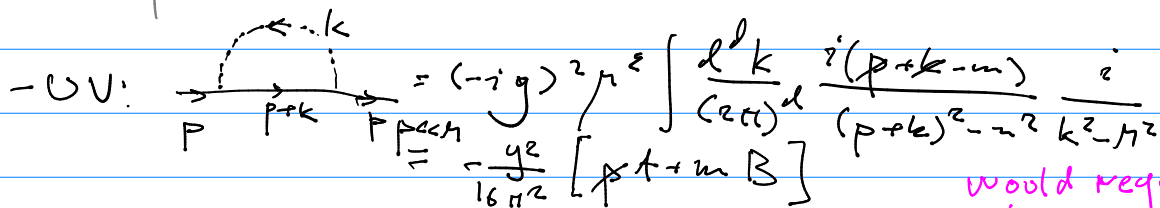 - UV: k p p+k p = (-ig)² μ^ε ∫ d^d k/(2π)^d i(p̸+k̸-m)/((p+k)²-m²) i/(k²-M²)
p≪M = -y²/16π² [p̸A+mB]
would req